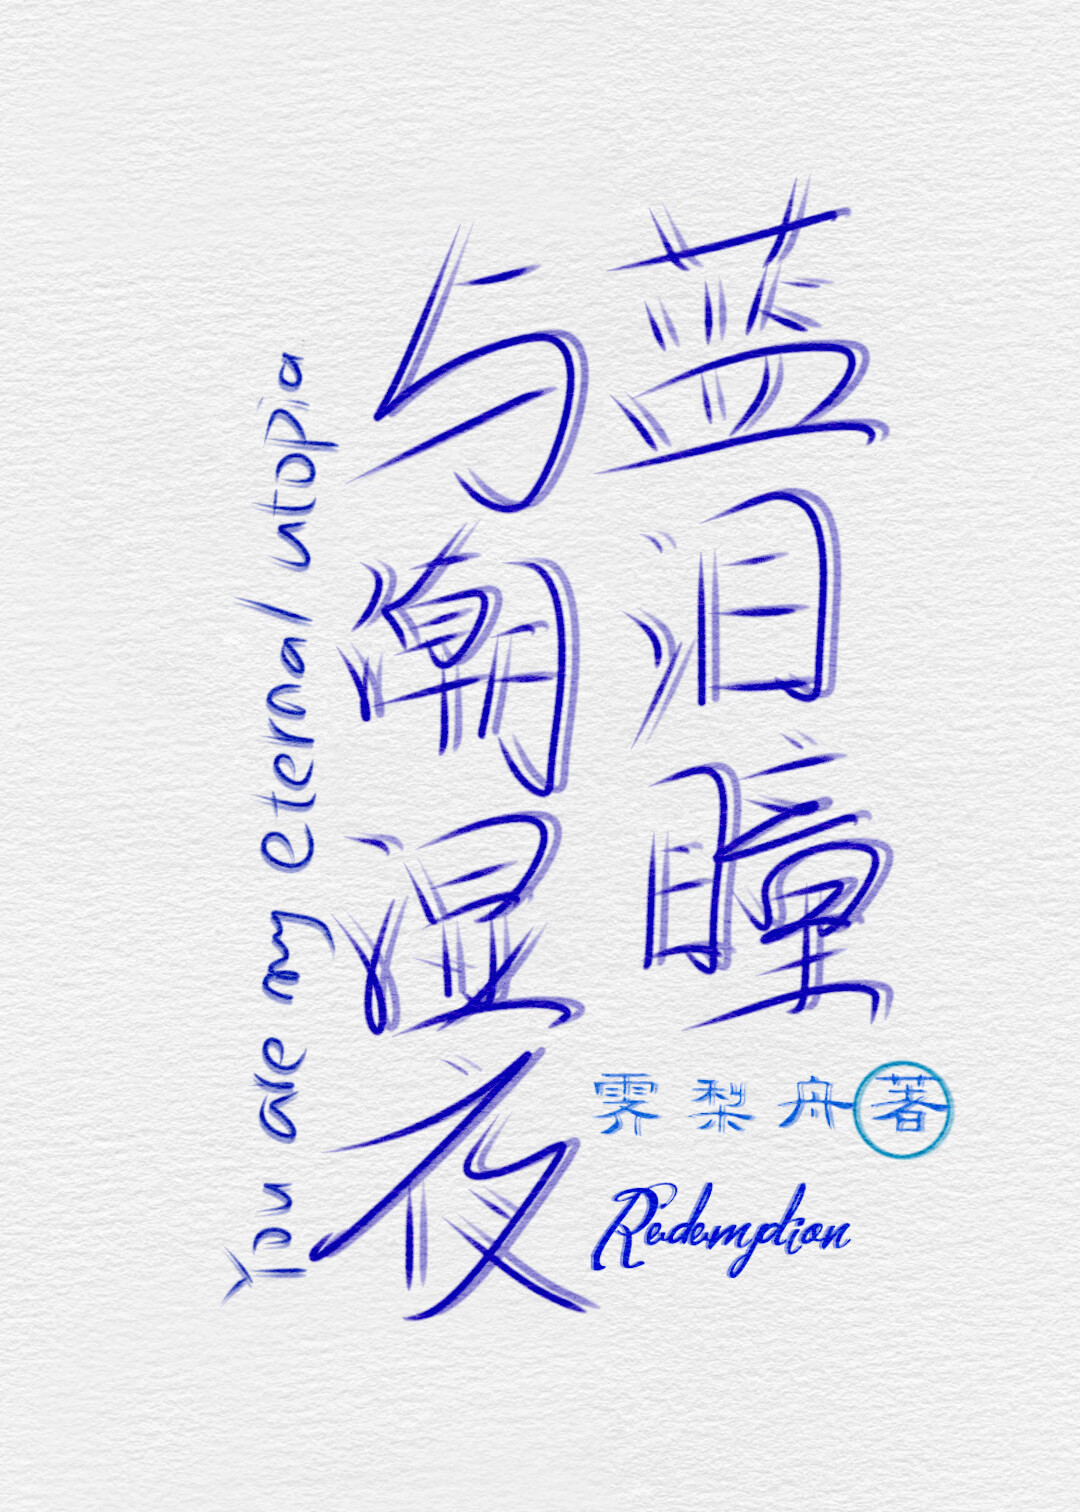 蓝泪瞳
与潮湿夜
You are my eternal utopia
霁梨舟著
Redemption